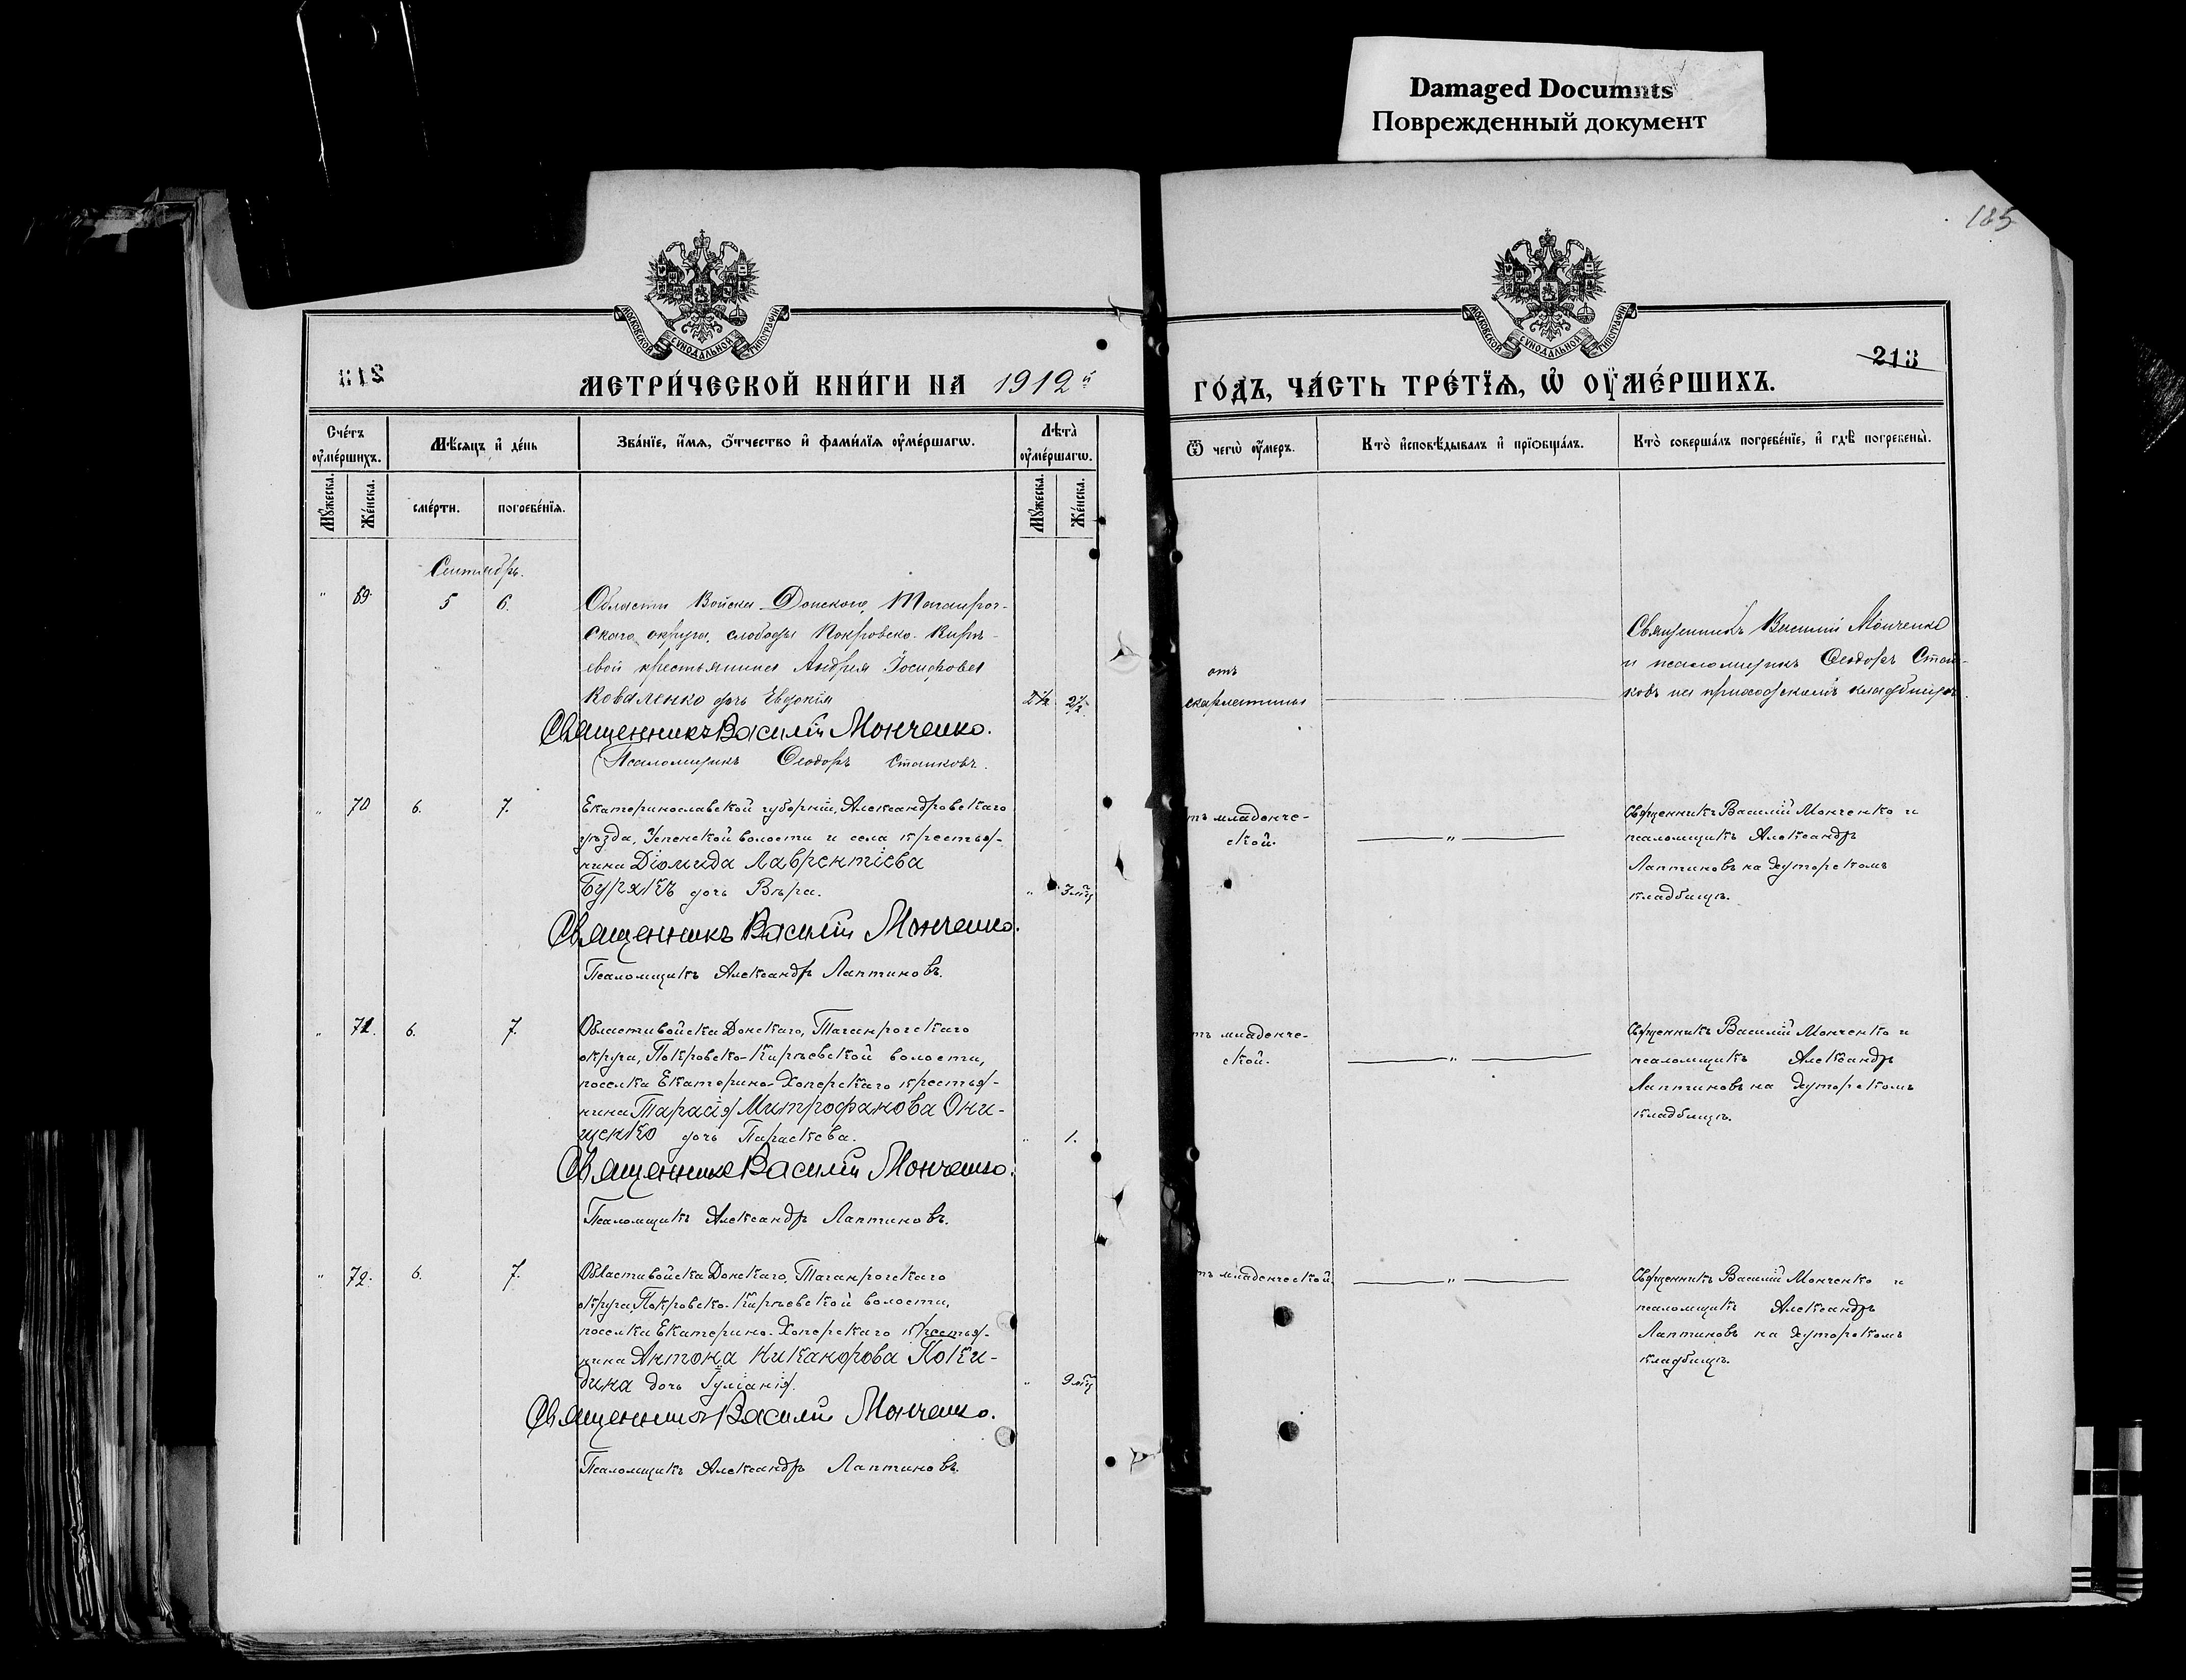 Damaged Documnts
Поврежденный документ
185
МОСКОВСКОЙ СѴНОДАЛЬНОЙ ТИПОГРАФІИ
МОСКОВСКОЙ СѴНОДАЛЬНОЙ ТИПОГРАФІИ
213
МЕТРИ́ЧЕСКОЙ КНИ́ГИ НА 1912й
ГО́ДЪ, ЧА́СТЬ ТРЕ́ТЇѦ, Ѡ҆ ОУ҆МЕ́РШИХЪ.
Сче́тъ оу҆ме́ршихъ.
Мѣ́сяцъ и҆ де́нь
Зва́нїе, и҆́мя, ѻ҆́тчество и҆ фами́лїя оу҆ме́ршагѡ.
Лѣта̀ оу҆ме́ршагѡ.
Ѿ чегѡ̀ оу҆́меръ.
Кто̀ и҆сповѣ́дывалъ и҆ прїѡбща́лъ.
Кто̀ соверша́лъ погребе́нїе, и҆ гдѣ̀ погребены̀.
Мꙋ́жеска.
Же́нска.
сме́рти.
погребе́нїя.
Мꙋ́жеска.
Же́нска.
Сентябрь.
" 69. 5 6. Области Войска Донского, Таганрог-
скаго округа, слободы Покровско-Кирѣ-
евой крестьянина Андрея Іосифова
Коваленко дочь Евдокія 2½
Священникъ Василій Монченко.
Псаломщикъ Ѳеодоръ Станковъ.
отъ
скарлатины
Священникъ Василій Монченко
и псаломщикъ Ѳеодоръ Стан-
ковъ на приходскомъ кладбищѣ
" 70 6. 7. Екатеринославской губерніи, Александровскаго
уѣзда, Успенской волости и села крестья-
нина Діомида Лаврентіева
Бурякъ дочь Вѣра. " 3 мц
Священникъ Василій Монченко.
Псаломщикъ Александръ Лаптиновъ.
тъ младенче-
ской.
"
Священникъ Василій Монченко и
псаломщикъ Александръ
Лаптиновъ на хуторскомъ
кладбищѣ.
" 71. 6. 7. Области войска Донскаго, Таганрогскаго
округа, Покровско-Кирѣевской волости,
поселка Екатерино-Хоперскаго крестья-
нина Тарасія Митрофанова Они-
щенко дочь Параскева. " 1.
Священникъ Василій Монченко.
Псаломщикъ Александръ Лаптиновъ.
тъ младенче-
ской.
"
Священникъ Василій Монченко и
псаломщикъ Александръ
Лаптиновъ на хуторскомъ
кладбищѣ.
" 72. 6. 7. Области войска Донскаго, Таганрогскаго
округа, Покровско-Кирѣевской волости,
поселка Екатерино-Хоперскаго крестья-
нина Антона Никанорова Поки-
дика дочь Іуліанія. " 9 мц
Священникъ Василій Монченко.
Псаломщикъ Александръ Лаптиновъ.
тъ младенческой.
"
Священникъ Василій Монченко и
псаломщикъ Александръ
Лаптиновъ на хуторскомъ
кладбищѣ.